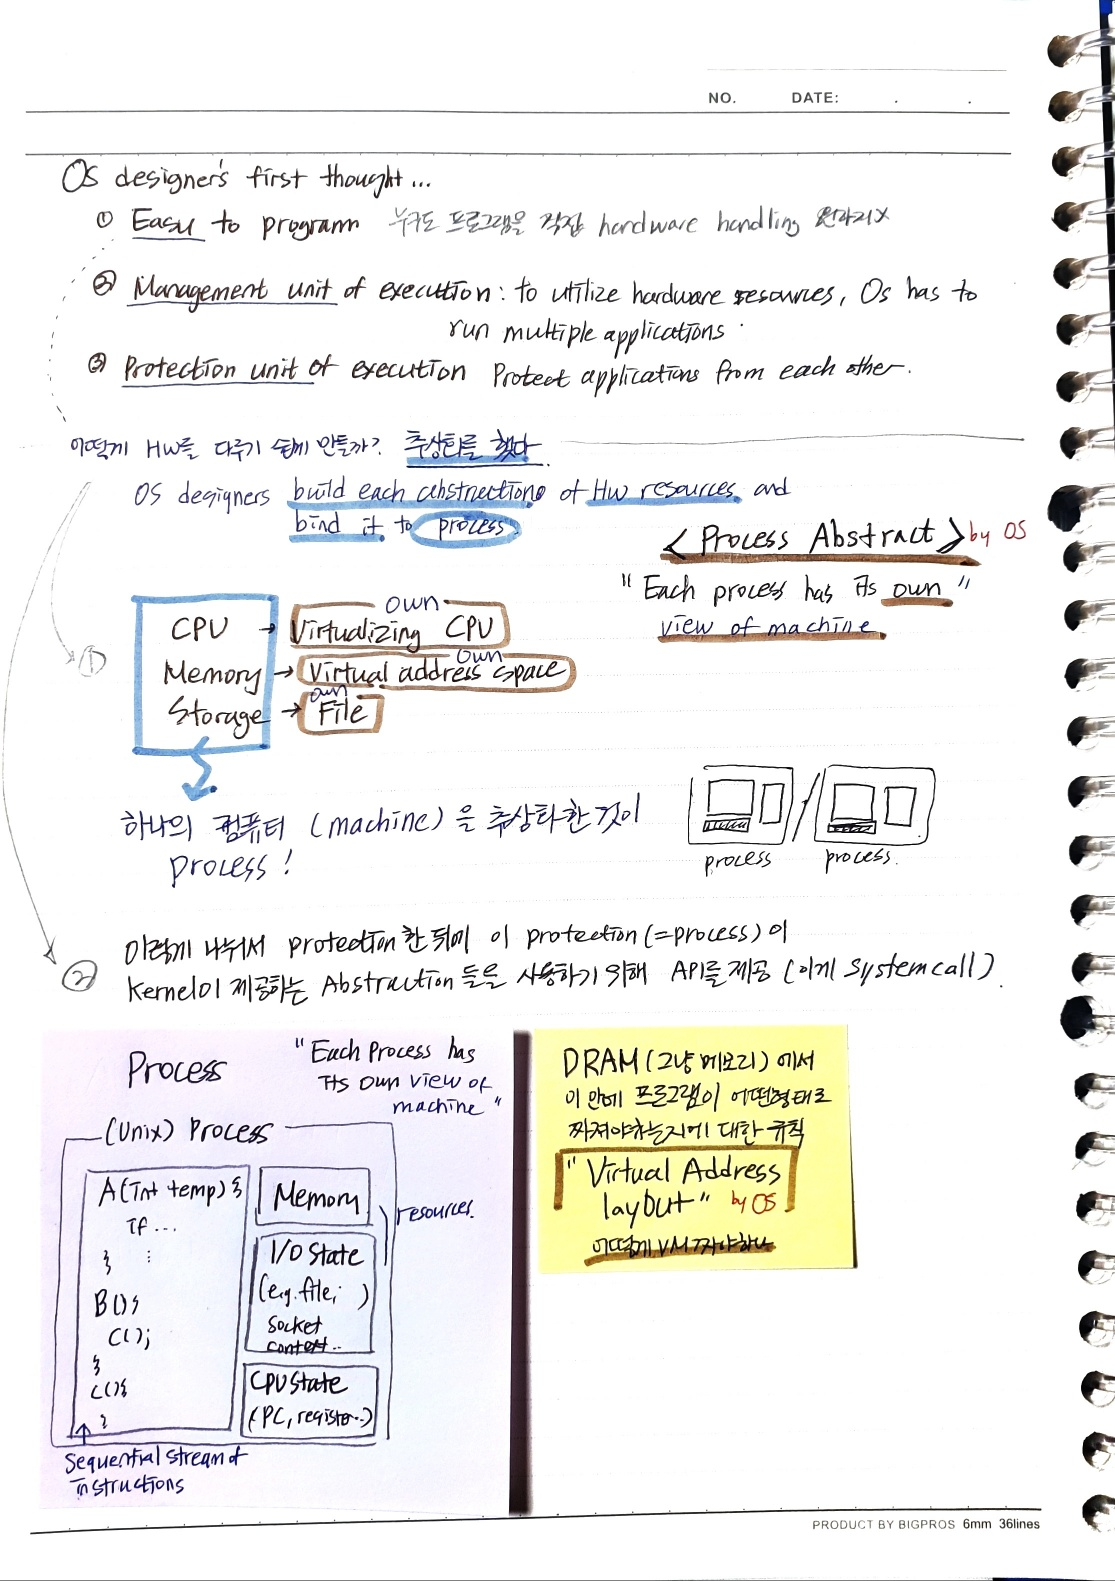 NO. DATE: . .
Os designer's first thought...
① Easy to program 누구도 프로그램을 직접 hardware handling 원하지X
② Management unit of execution : to utilize hardware resources, Os has to
run multiple applications.
③ Protection unit of execution Protect applications from each other.
어떻게 HW를 다루기 쉽게 만들까? 추상화를 했다
OS designers build each abstractions of HW resources and
bind it to process
< Process Abstract > by OS
"Each process has its own"
view of machine
①
CPU → own Virtualizing CPU
Memory → own Virtual address space
Storage → own File
하나의 컴퓨터 (machine)을 추상화한 것이
process!
process process.
② 이렇게 나눠서 protection한 뒤에 이 protection(=process)이
Kernel이 제공하는 Abstraction들을 사용하기 위해 API를 제공 (이게 system call).
Process
"Each Process has
its own view of
machine"
(Unix) Process
A(int temp) {
if ...
} ⋮
B(){
C();
}
C(){
}
Memory
resources.
I/O State
(e.g. file, )
socket
context..
CPU state
(PC, register..)
Sequential stream of
instructions
DRAM (그냥 메모리) 에서
이 안에 프로그램이 어떤형태로
짜져야하는지에 대한 규칙
"Virtual Address
layout" by OS
어떻게 VM 짜야하나
PRODUCT BY BIGPROS 6mm 36lines